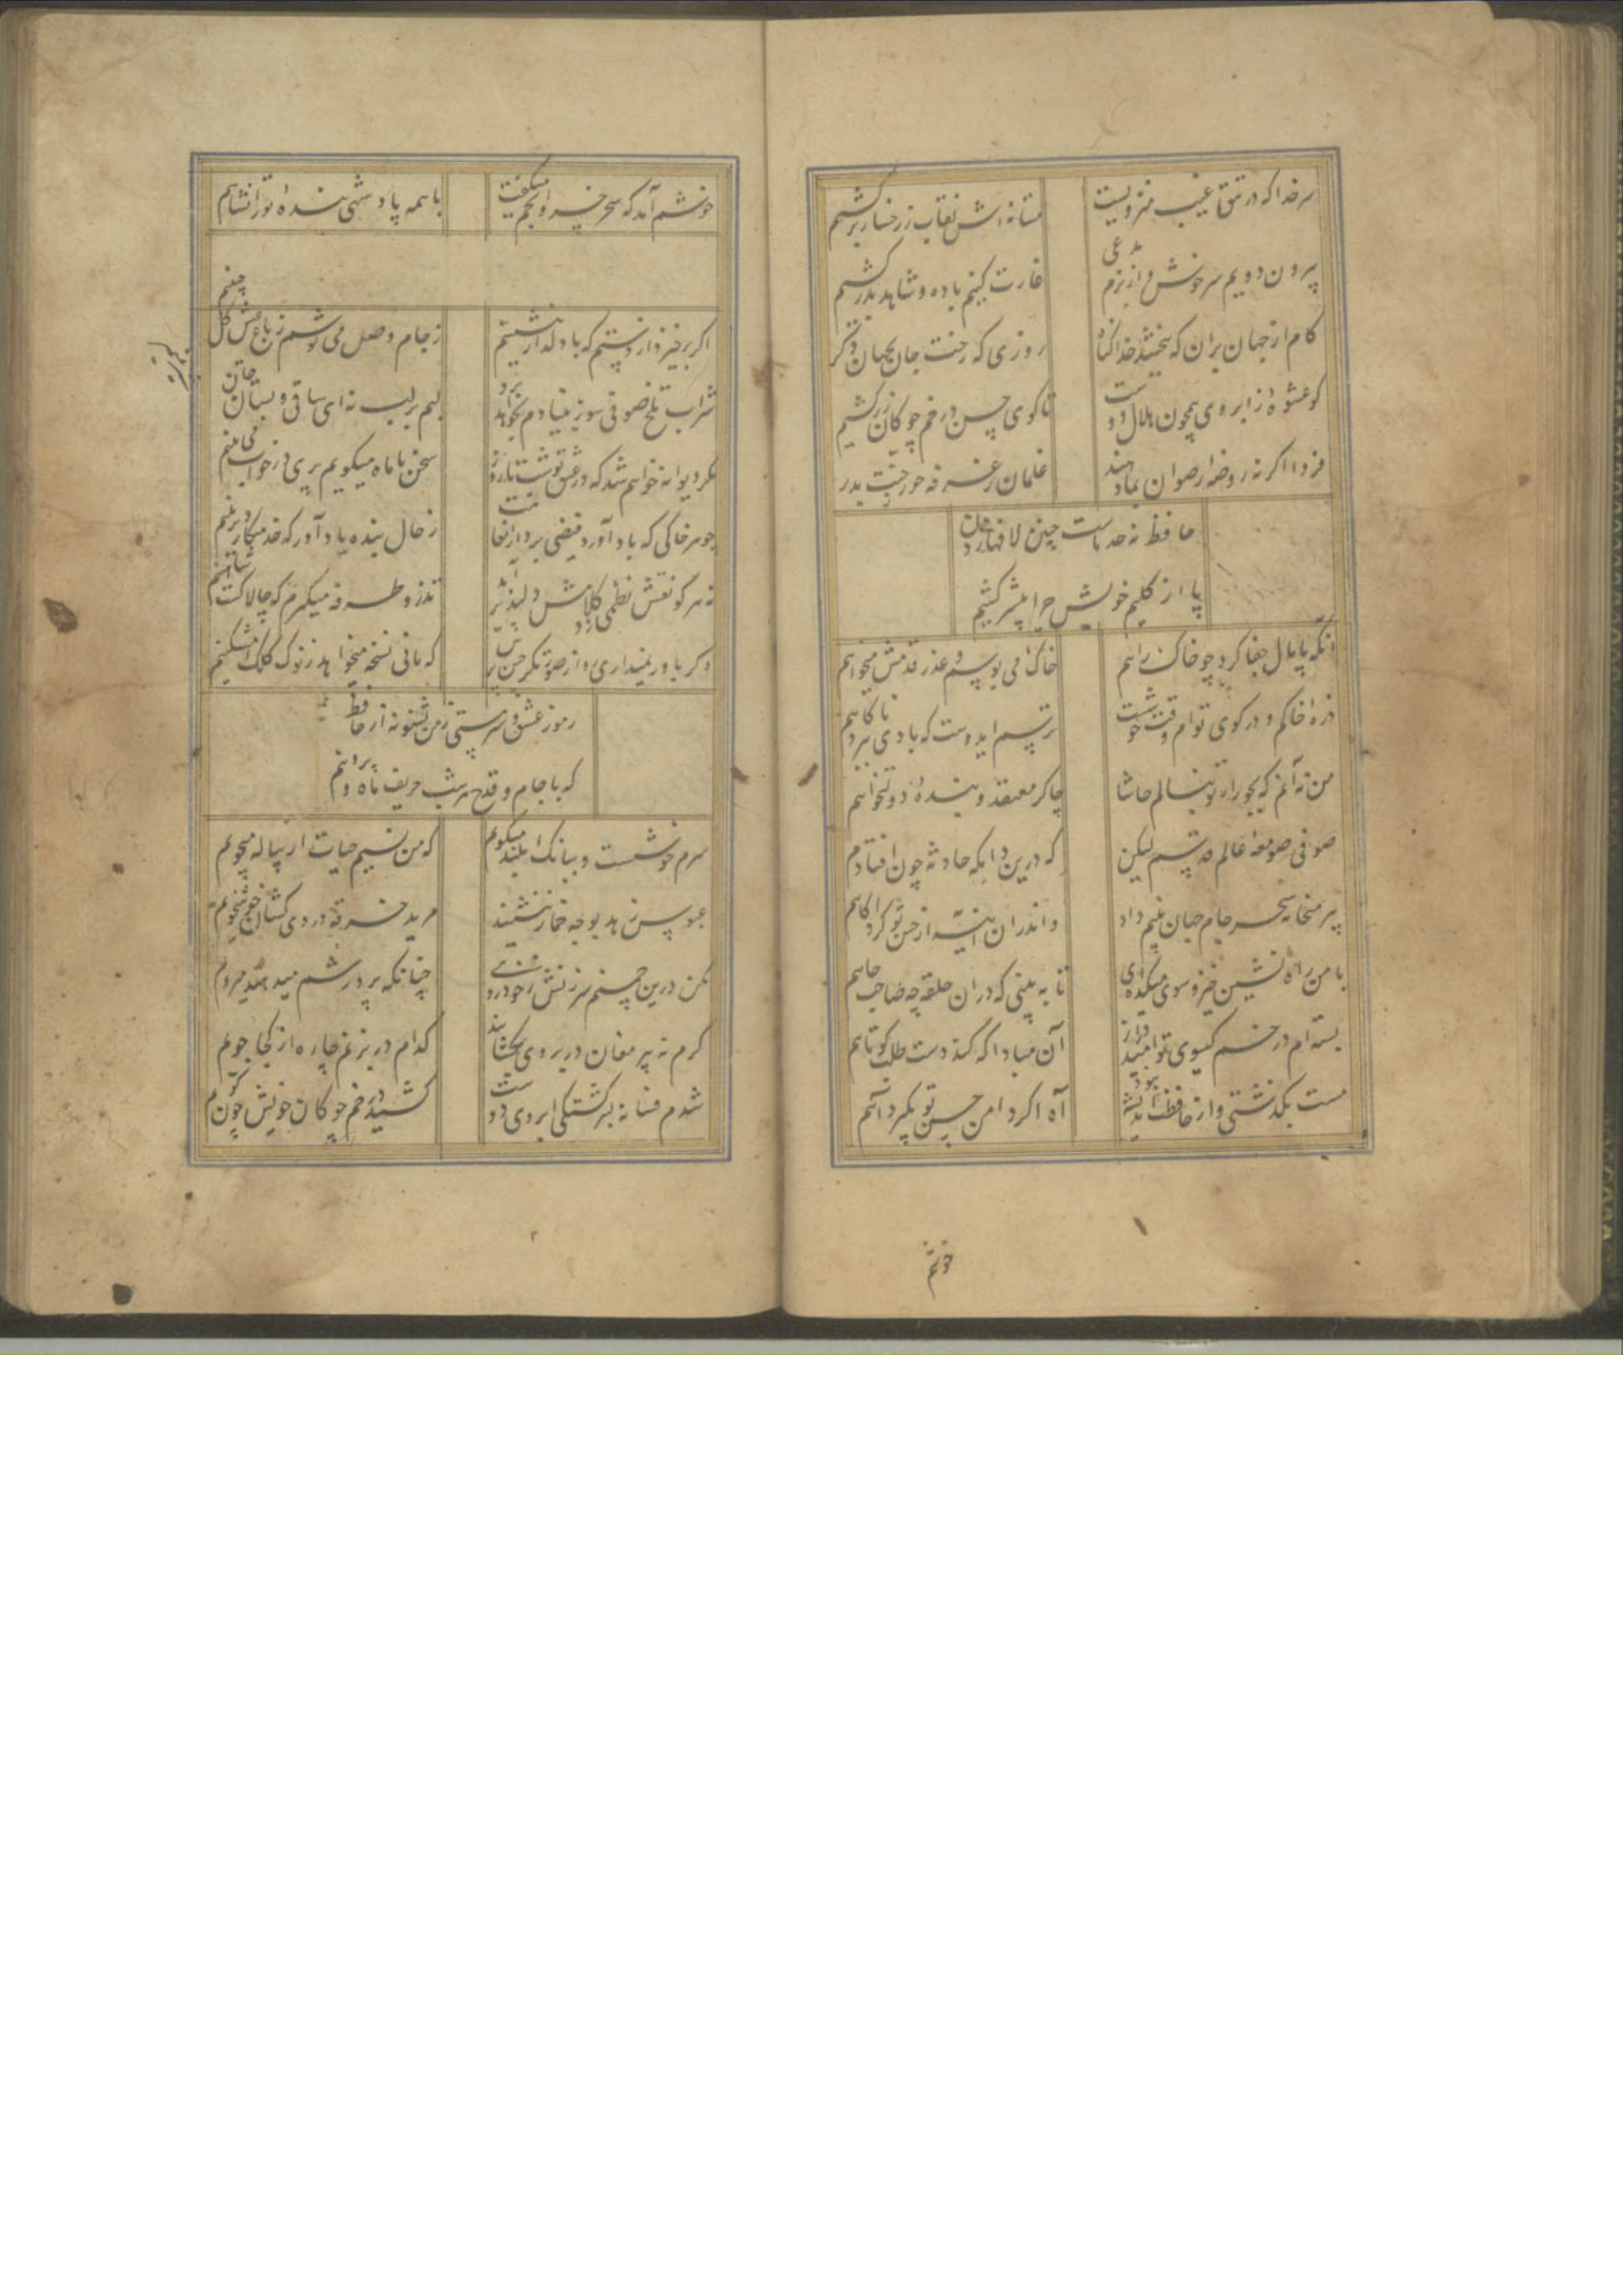 سر خدا که در تتق غیب منزویست
مستانه اش نقاب ز رخسار برکشیم
بیرون دویم سرخوش و از بزم مدعی
غارت کنیم باده و شاهد ببر کشیم
کام از جهان بران که ببخشد خدا گناه
روزی که رخت جان بجهان دگر کشیم
کو عشوهٔ ز ابروی همچون هلال دوست
تا کوی حسن در خم چوکان زر کشیم
فردا اکر نه روضهٔ رضوان بما دهند
غلمان ز غرفه حور ز جنت بدر
حافظ نه حد ماست چنین لافها زدن
پا از کلیم خویش چرا بیشتر کشیم
آنکه پامال جفا کرد چو خاک راهم
خاک می بوسم و عذر قدمش میخواهم
ذرهٔ خاکم و در کوی توام وقت خوشست
ترسم ایدوست که بادی ببرد ناکاهم
من نه آنم که بجور از تو بنالم حاشا
چاکر معتقد و بندهٔ دولتخواهم
صوفی صومعهٔ عالم قدسم لیکن
که درین دامکه حادثه چون افتادم
پیر میخانه سحر جام جهان بینم داد
واندران آینه از حسن تو کرد آکاهم
با من راه نشین خیز و سوی میکده آی
تا به بینی که دران حلقه چه صاحب جاهم
بسته ام در خم کیسوی تو امید دراز
آن مبادا که کند دست طلب کوتاهم
مست بکذشتی و از حافظت اندیشه نبود
آه اکر دامن حسن تو بکیرد آهم
خوشم
خوشم آمد که سحر خسرو انجم میکفت
با همه پادشهی بندهٔ تورانشاهم
اکر برخیزد از دستم که با دلدار بنشینم
ز جام وصل می نوشم ز باغ عیش کل چینم
شراب تلخ صوفی سوز بنیادم بخواهد برد
لبم بر لب نه ای ساقی و بستان جان
مکر دیوانه خواهم شد که در عشق تو شب تا روز
سخن با ماه میکویم پری در خواب می بینم
چو هر خاکی که باد آورد فیضی برد از انعامت
ز حال بنده یاد آور که خدمتکار دیرینم
نه هر کو نقش نظمی زد کلامش دلپذیر آمد
تذرو طرفه میکیرم که چالاکست شاهینم
وکر باور نمیداری رو از صورتکر چین پرس
که مانی نسخه میخواهد ز نوک کلک مشکینم
رموز عشق و سرمستی ز من بشنو نه از حافظ
که با جام و قدح هر شب حریف ماه و پروینم
سرم خوشست و ببانک بلند میکویم
که من نسیم حیات از پیاله میجویم
عبوس زهد بوجه خمار ننشیند
مرید خرقه دردی کشان خوشخویم
مکن درین چمنم سرزنش بخودرویی
چنانکه پرورشم میدهند میرویم
کرم نه پیر مغان در بروی بکشاید
کدام در بزنم چاره از کجا جویم
شدم فسانه بسرکشتکی ابروی دوست
کشید در خم چوکان خویش چون کویم